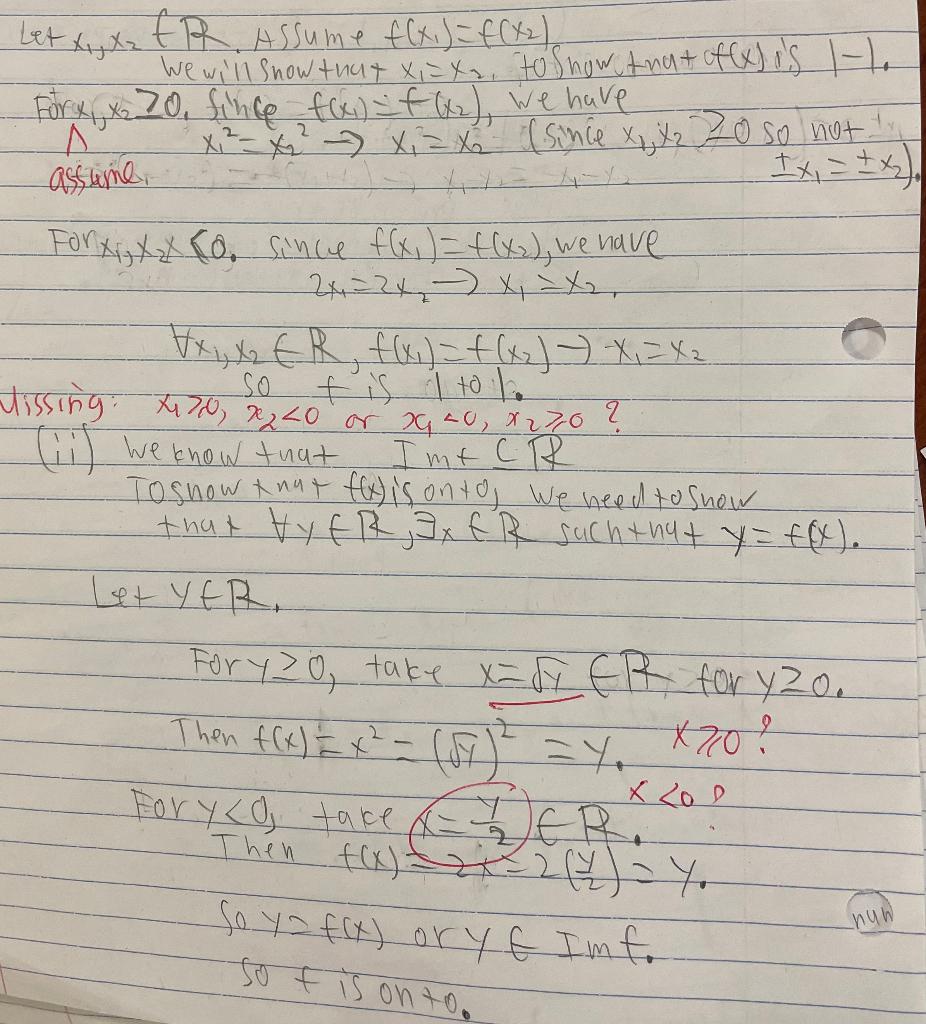 Let x₁, x₂ ∈ ℝ. Assume f(x₁) = f(x₂)
We will show that x₁ = x₂, to show that f(x) is 1-1.
For x₁, x₂ ≥ 0. Since f(x₁) = f(x₂), we have
^
assume,
x₁² = x₂² → x₁ = x₂ (since x₁, x₂ ≥ 0 so not
± x₁ = ± x₂).
For x₁, x₂ < 0. Since f(x₁) = f(x₂), we have
2x₁ = 2x₂ → x₁ = x₂.
∀x₁, x₂ ∈ ℝ, f(x₁) = f(x₂) → x₁ = x₂
so f is 1 to 1.
Missing: x₁ ≥ 0, x₂ < 0 or x₁ < 0, x₂ ≥ 0 ?
(ii) We know that Im f ⊂ ℝ
To show that f(x) is onto, we need to show
that ∀y ∈ ℝ, ∃x ∈ ℝ such that y = f(x).
Let y ∈ ℝ.
For y ≥ 0, take x = √y ∈ ℝ for y ≥ 0.
Then f(x) = x² = (√y)² = y. x ≥ 0 ?
x < 0 ?
For y < 0, take x = y/2 ∈ ℝ.
Then f(x) = 2x = 2(y/2) = y.
So y = f(x) or y ∈ Im f.
So f is onto.